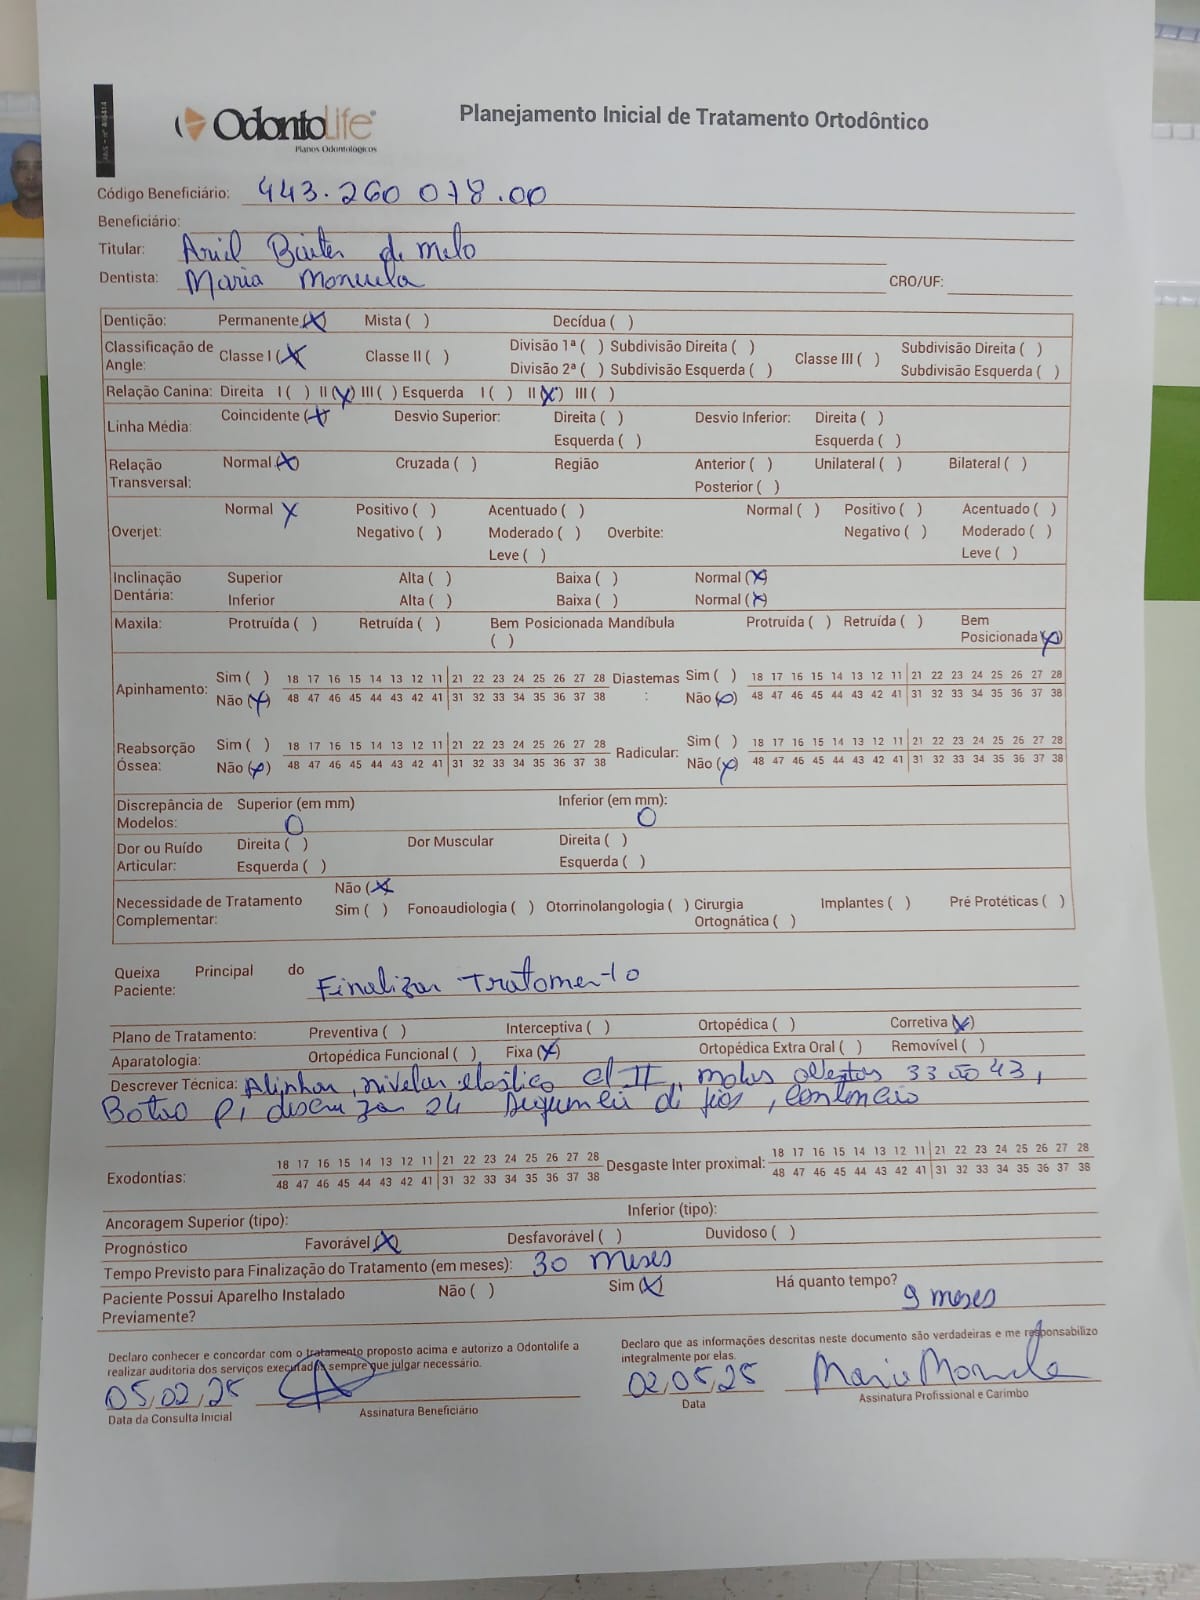 ANS - nº 406414
OdontoLife®
Planos Odontológicos
Planejamento Inicial de Tratamento Ortodôntico
Código Beneficiário: 443.260 078.00
Beneficiário:
Titular: Ariel de melo
Dentista: Maria Monuela CRO/UF:
Dentição: Permanente (X) Mista ( ) Decídua ( )
Classificação de Angle: Classe I (X) Classe II ( ) Divisão 1ª ( ) Subdivisão Direita ( ) Classe III ( ) Subdivisão Direita ( )
Divisão 2ª ( ) Subdivisão Esquerda ( ) Subdivisão Esquerda ( )
Relação Canina: Direita I ( ) II (X) III ( ) Esquerda I ( ) II (X) III ( )
Linha Média: Coincidente (X) Desvio Superior: Direita ( ) Desvio Inferior: Direita ( )
Esquerda ( ) Esquerda ( )
Relação Transversal: Normal (X) Cruzada ( ) Região Anterior ( ) Unilateral ( ) Bilateral ( )
Posterior ( )
Overjet: Normal X Positivo ( ) Acentuado ( ) Overbite: Normal ( ) Positivo ( ) Acentuado ( )
Negativo ( ) Moderado ( ) Negativo ( ) Moderado ( )
Leve ( ) Leve ( )
Inclinação Dentária: Superior Alta ( ) Baixa ( ) Normal (X)
Inferior Alta ( ) Baixa ( ) Normal (X)
Maxila: Protruída ( ) Retruída ( ) Bem Posicionada ( ) Mandíbula Protruída ( ) Retruída ( ) Bem Posicionada (X)
Apinhamento: Sim ( ) 18 17 16 15 14 13 12 11 21 22 23 24 25 26 27 28 Diastemas: Sim ( ) 18 17 16 15 14 13 12 11 21 22 23 24 25 26 27 28
Não (X) 48 47 46 45 44 43 42 41 31 32 33 34 35 36 37 38 Não (X) 48 47 46 45 44 43 42 41 31 32 33 34 35 36 37 38
Reabsorção Óssea: Sim ( ) 18 17 16 15 14 13 12 11 21 22 23 24 25 26 27 28 Radicular: Sim ( ) 18 17 16 15 14 13 12 11 21 22 23 24 25 26 27 28
Não (X) 48 47 46 45 44 43 42 41 31 32 33 34 35 36 37 38 Não (X) 48 47 46 45 44 43 42 41 31 32 33 34 35 36 37 38
Discrepância de Modelos: Superior (em mm) 0 Inferior (em mm): 0
Dor ou Ruído Articular: Direita ( ) Dor Muscular Direita ( )
Esquerda ( ) Esquerda ( )
Necessidade de Tratamento Complementar: Não (X)
Sim ( ) Fonoaudiologia ( ) Otorrinolangologia ( ) Cirurgia Ortognática ( ) Implantes ( ) Pré Protéticas ( )
Queixa Principal do Paciente: Finalizar Tratamento
Plano de Tratamento: Preventiva ( ) Interceptiva ( ) Ortopédica ( ) Corretiva (X)
Aparatologia: Ortopédica Funcional ( ) Fixa (X) Ortopédica Extra Oral ( ) Removível ( )
Descrever Técnica: Alinhar, nivelar elástico cl II, molas abertas 33 ao 43,
Botao p/ descruzar 24 Sequencia de fios, Contencao
Exodontias: 18 17 16 15 14 13 12 11 21 22 23 24 25 26 27 28 Desgaste Inter proximal: 18 17 16 15 14 13 12 11 21 22 23 24 25 26 27 28
48 47 46 45 44 43 42 41 31 32 33 34 35 36 37 38 48 47 46 45 44 43 42 41 31 32 33 34 35 36 37 38
Ancoragem Superior (tipo): Inferior (tipo):
Prognóstico Favorável (X) Desfavorável ( ) Duvidoso ( )
Tempo Previsto para Finalização do Tratamento (em meses): 30 meses
Paciente Possui Aparelho Instalado Previamente? Não ( ) Sim (X) Há quanto tempo? 9 meses
Declaro conhecer e concordar com o tratamento proposto acima e autorizo a Odontolife a
realizar auditoria dos serviços executados sempre que julgar necessário.
Declaro que as informações descritas neste documento são verdadeiras e me responsabilizo
integralmente por elas.
05,02,25 02,05,25 Maria Monuela
Data da Consulta Inicial Assinatura Beneficiário Data Assinatura Profissional e Carimbo